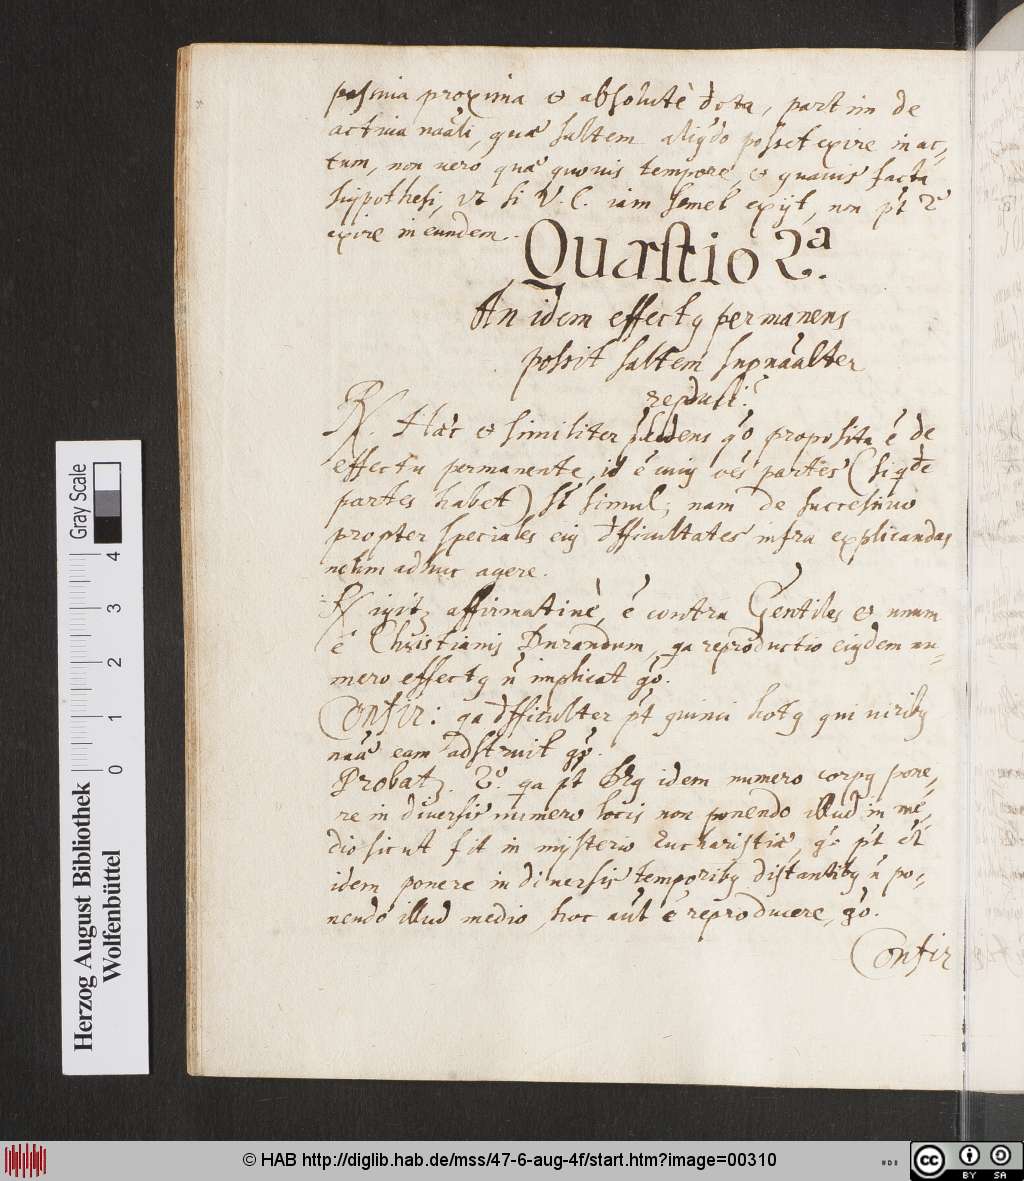 proxima et absolutè dcta, partim de
actiua nãali, quæ saltem aliq̃do posset exire in ac-
tum, non uero quæ quouis tempore, et quauis facta
hypothesi, ut si V.C. iam semel exijt, non pt̃ 2º
exire in eundem.
Quæstio 2ª.
An idem effectq permanens
possit saltem supnãalter
repduci?
R. Hæc et similiter seq̃ens qº proposita ẽ de
effectu permanente, id ẽ cuiq oẽs partes (siq̃dẽ
partes habet) st̃ simul; nam de successiuo
propter speciales eiq dfficultates infra explicandas
nolim adhuc agere.
R. igitʒ affirmatiuè, ẽ contra Gentiles et unum
ẽ Christianis Durandum, qa reproductio eiqdem nu-
mero effectq ñ implicat gº.
Confir: qa dfficulter pt̃ quiui hotq qui uiribq
nãæ eam adstruit
Probatʒ. 2º. qa pt̃ idem numero corpq pone-
re in diuersis numero locis non ponendo illud in me-
dio sicut fit in mysterio Eucharistiæ, gº pt̃ et̃
idem ponere in diuersis temporibq distantibq ñ po-
nendo illud medio, hoc aũt ẽ reproducere, gº.
Confir
Herzog August Bibliothek
Wolfenbüttel
Gray Scale
0 1 2 3 4
© HAB http://diglib.hab.de/mss/47-6-aug-4f/start.htm?image=00310
cc BY SA